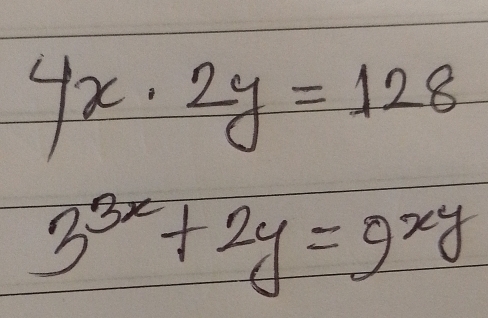 4x · 2y = 128
3^{3x} + 2y = 9^{xy}